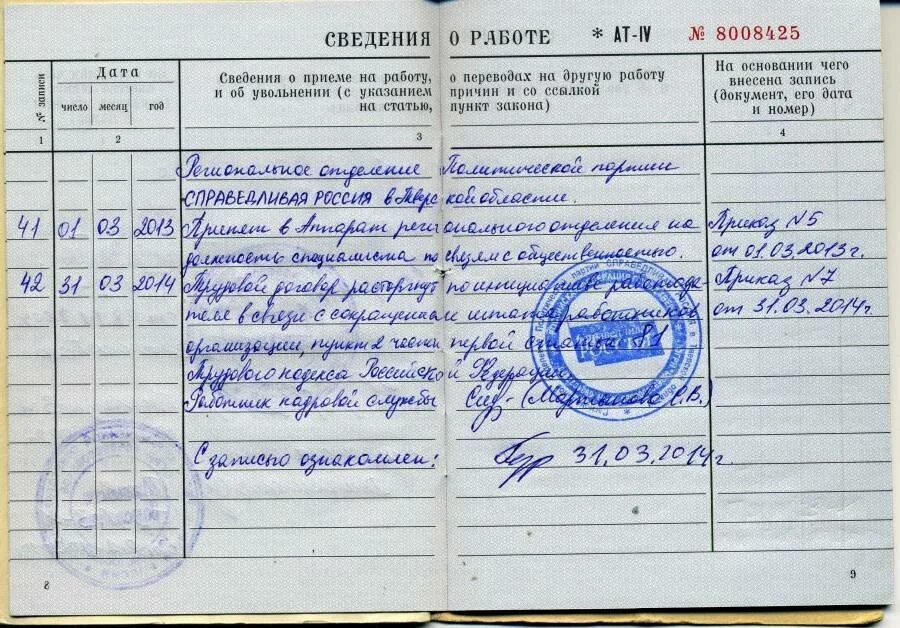 СВЕДЕНИЯ О РАБОТЕ * АТ-IV № 8008425
№ записи
Дата
число месяц год
Сведения о приеме на работу, о переводах на другую работу
и об увольнении (с указанием причин и со ссылкой
на статью, пункт закона)
На основании чего
внесена запись
(документ, его дата
и номер)
1 2 3 4
Региональное отделение Политической партии
СПРАВЕДЛИВАЯ РОССИЯ в Тверской области.
41 01 03 2013 Принят в Аппарат регионального отделения на Приказ №5
должность специалиста по связям с общественностью. от 01.03.2013г.
42 31 03 2014 Трудовой договор расторгнут по инициативе работода- Приказ №7
теля в связи с сокращением штата работников от 31.03.2014г.
организации, пункт 2 части первой статьи 81
Трудового кодекса Российской Федерации
Работник кадровой службы (Мартынова С.В.)
С записью ознакомлен: 31.03.2014г.
8 9